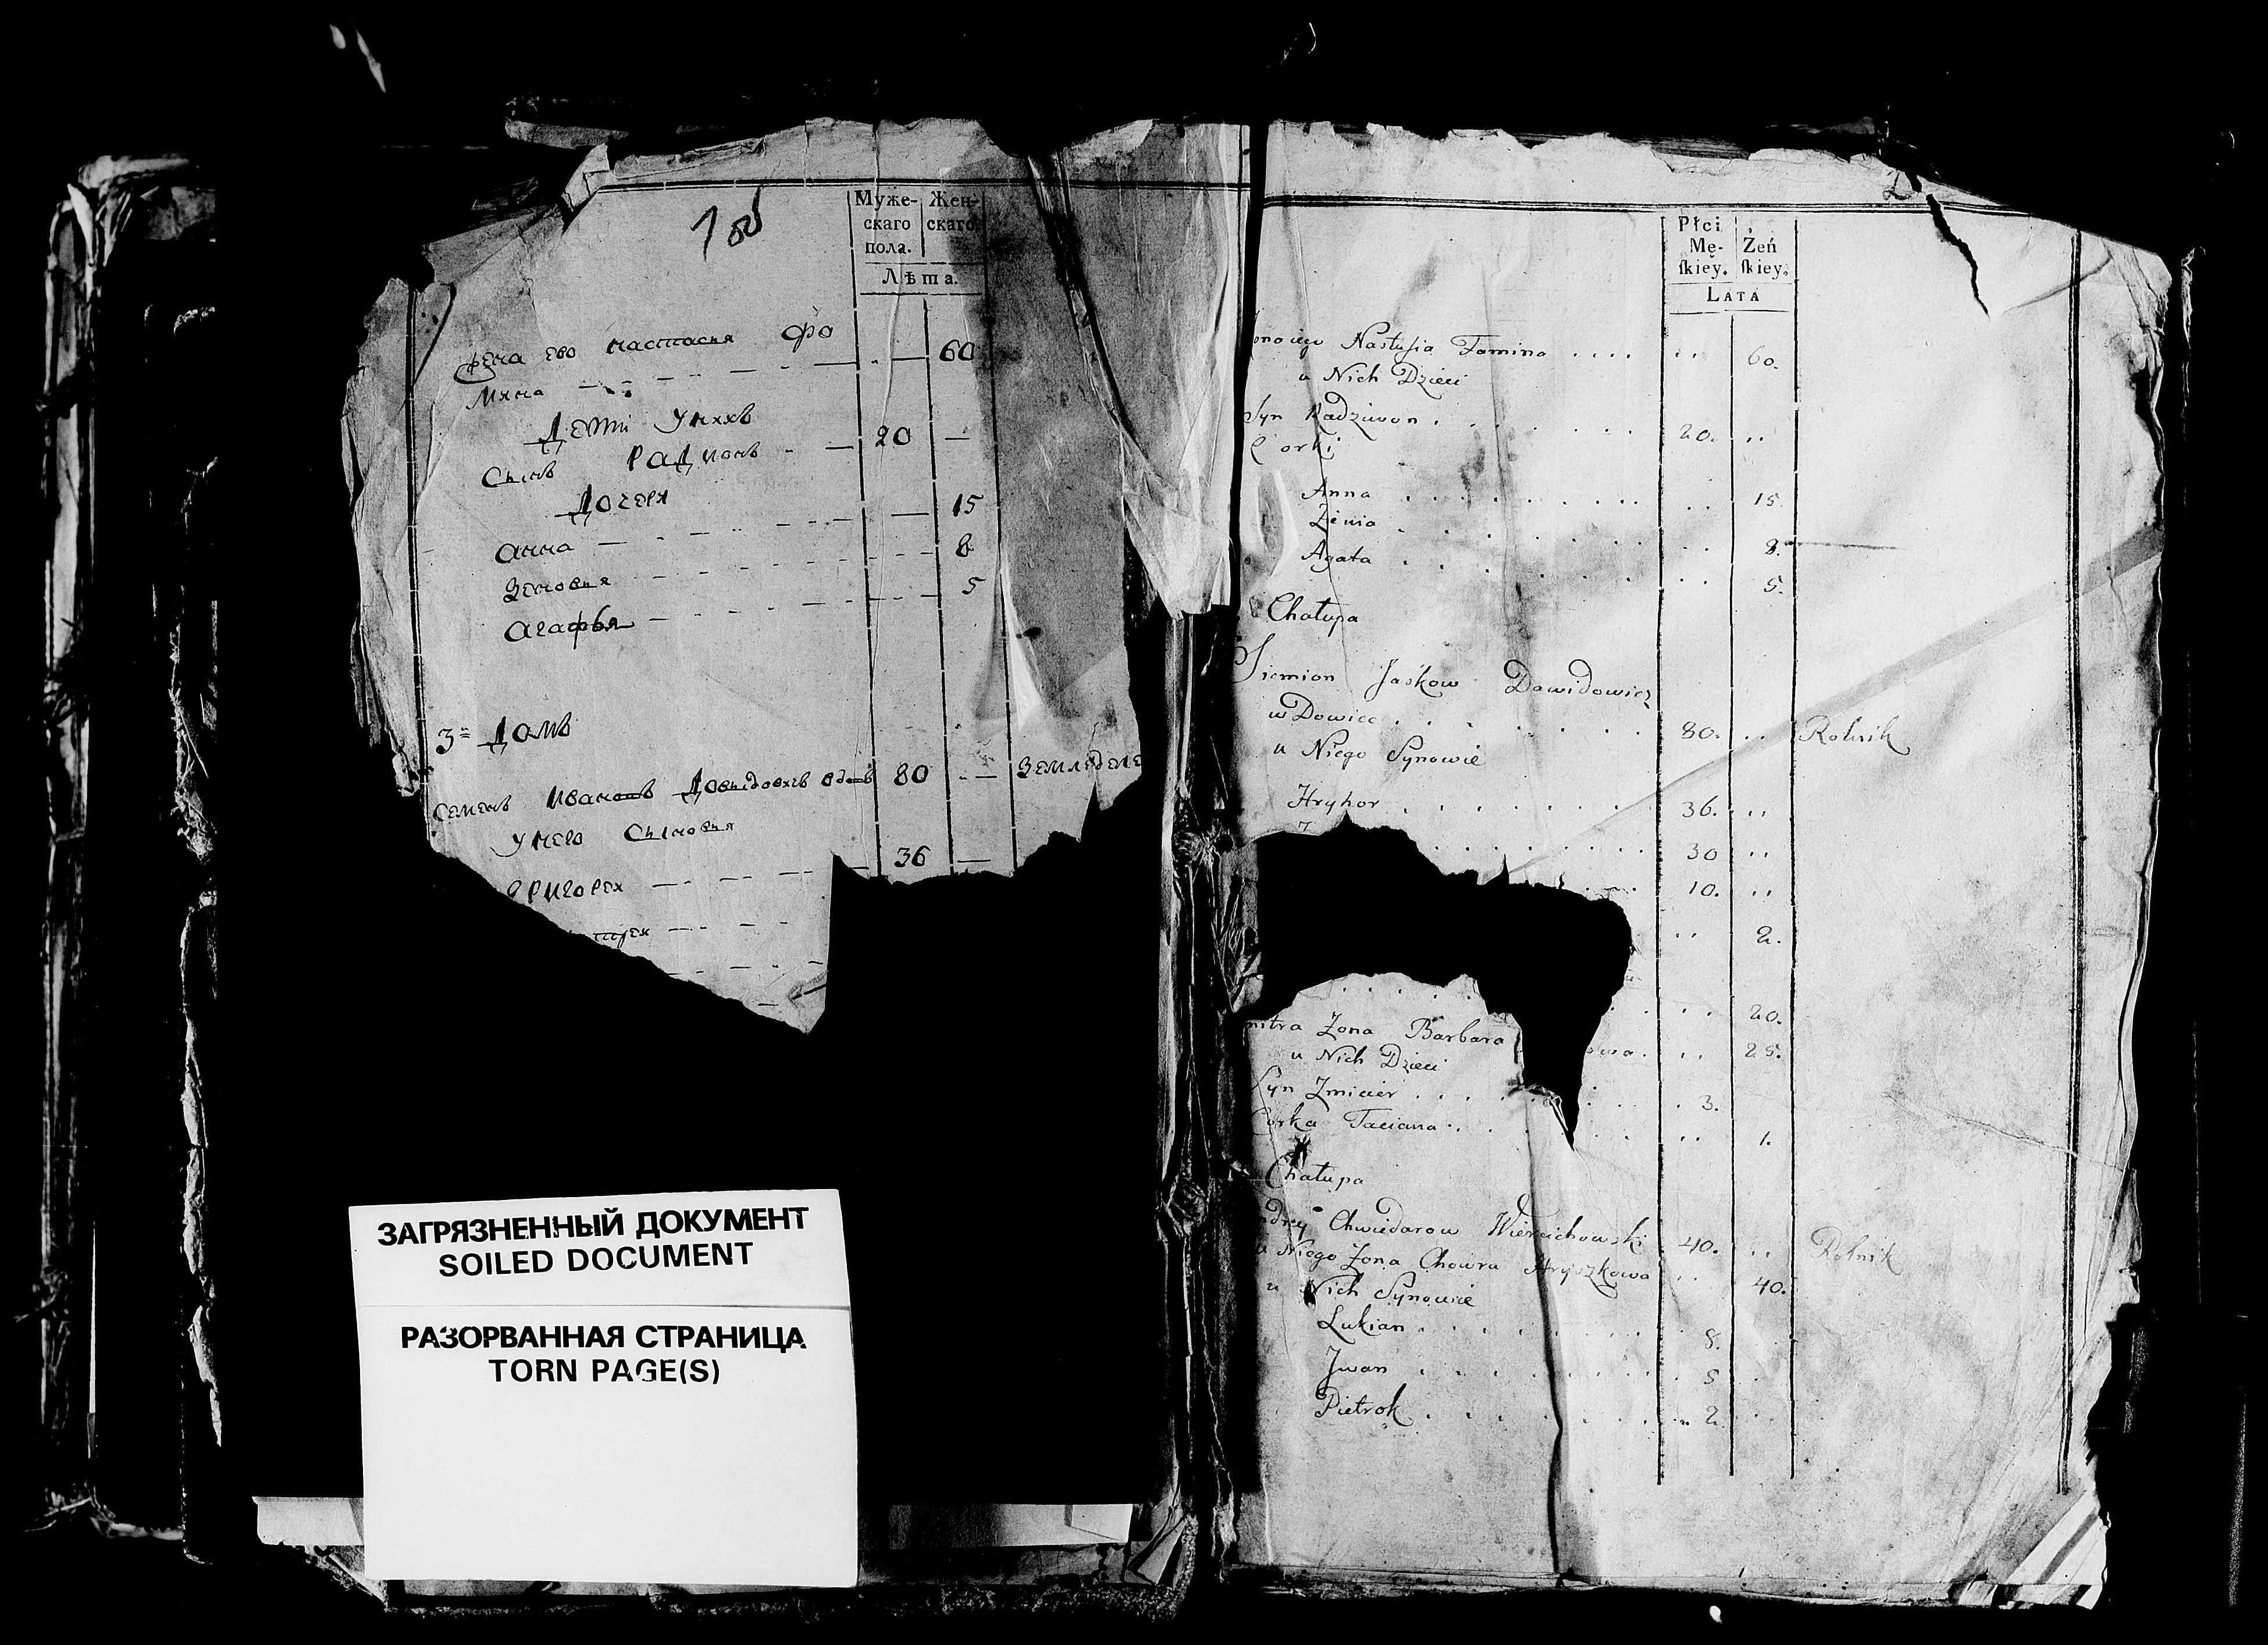 Муже- Жен-
скаго скаго
пола.
Лѣта.
жена ево настасия Фо
мина — 60
Дети Уних
Сынъ Радионъ 20 —
Дочери
анна — 15
Зеновия 8
агафья 5
3й Домъ
Семенъ Ивановъ Довыдовичъ вдовъ 80 — Земледеле
Унего Сыновья
григорей 36 —
Płci
Mę- Żeń
skiey. skiey.
LATA
Nastusia Fomina 60.
u Nich Dzieci
Syn Radziwon 20.
Corki
Anna 15.
Zienia 8.
Agata 5.
Chałupa
Siemion Jaskow Dawidowicz
wDowiec 80. Rolnik
u Niego Synowie
Hryhor 36.
30
10.
2.
20.
mitra Żona Barbara owa. 25.
u Nich Dzieci
Syn Zmicier 3.
Corka Taciana 1.
Chałupa
ndrey Chwiedarow Wiercichowski 40. Rolnik
u Niego Żona Chowra Hryszkowa 40.
u Nich Synowie
Łukian 8.
Jwan 5
Pietrok 2.
ЗАГРЯЗНЕННЫЙ ДОКУМЕНТ
SOILED DOCUMENT
РАЗОРВАННАЯ СТРАНИЦА
TORN PAGE(S)